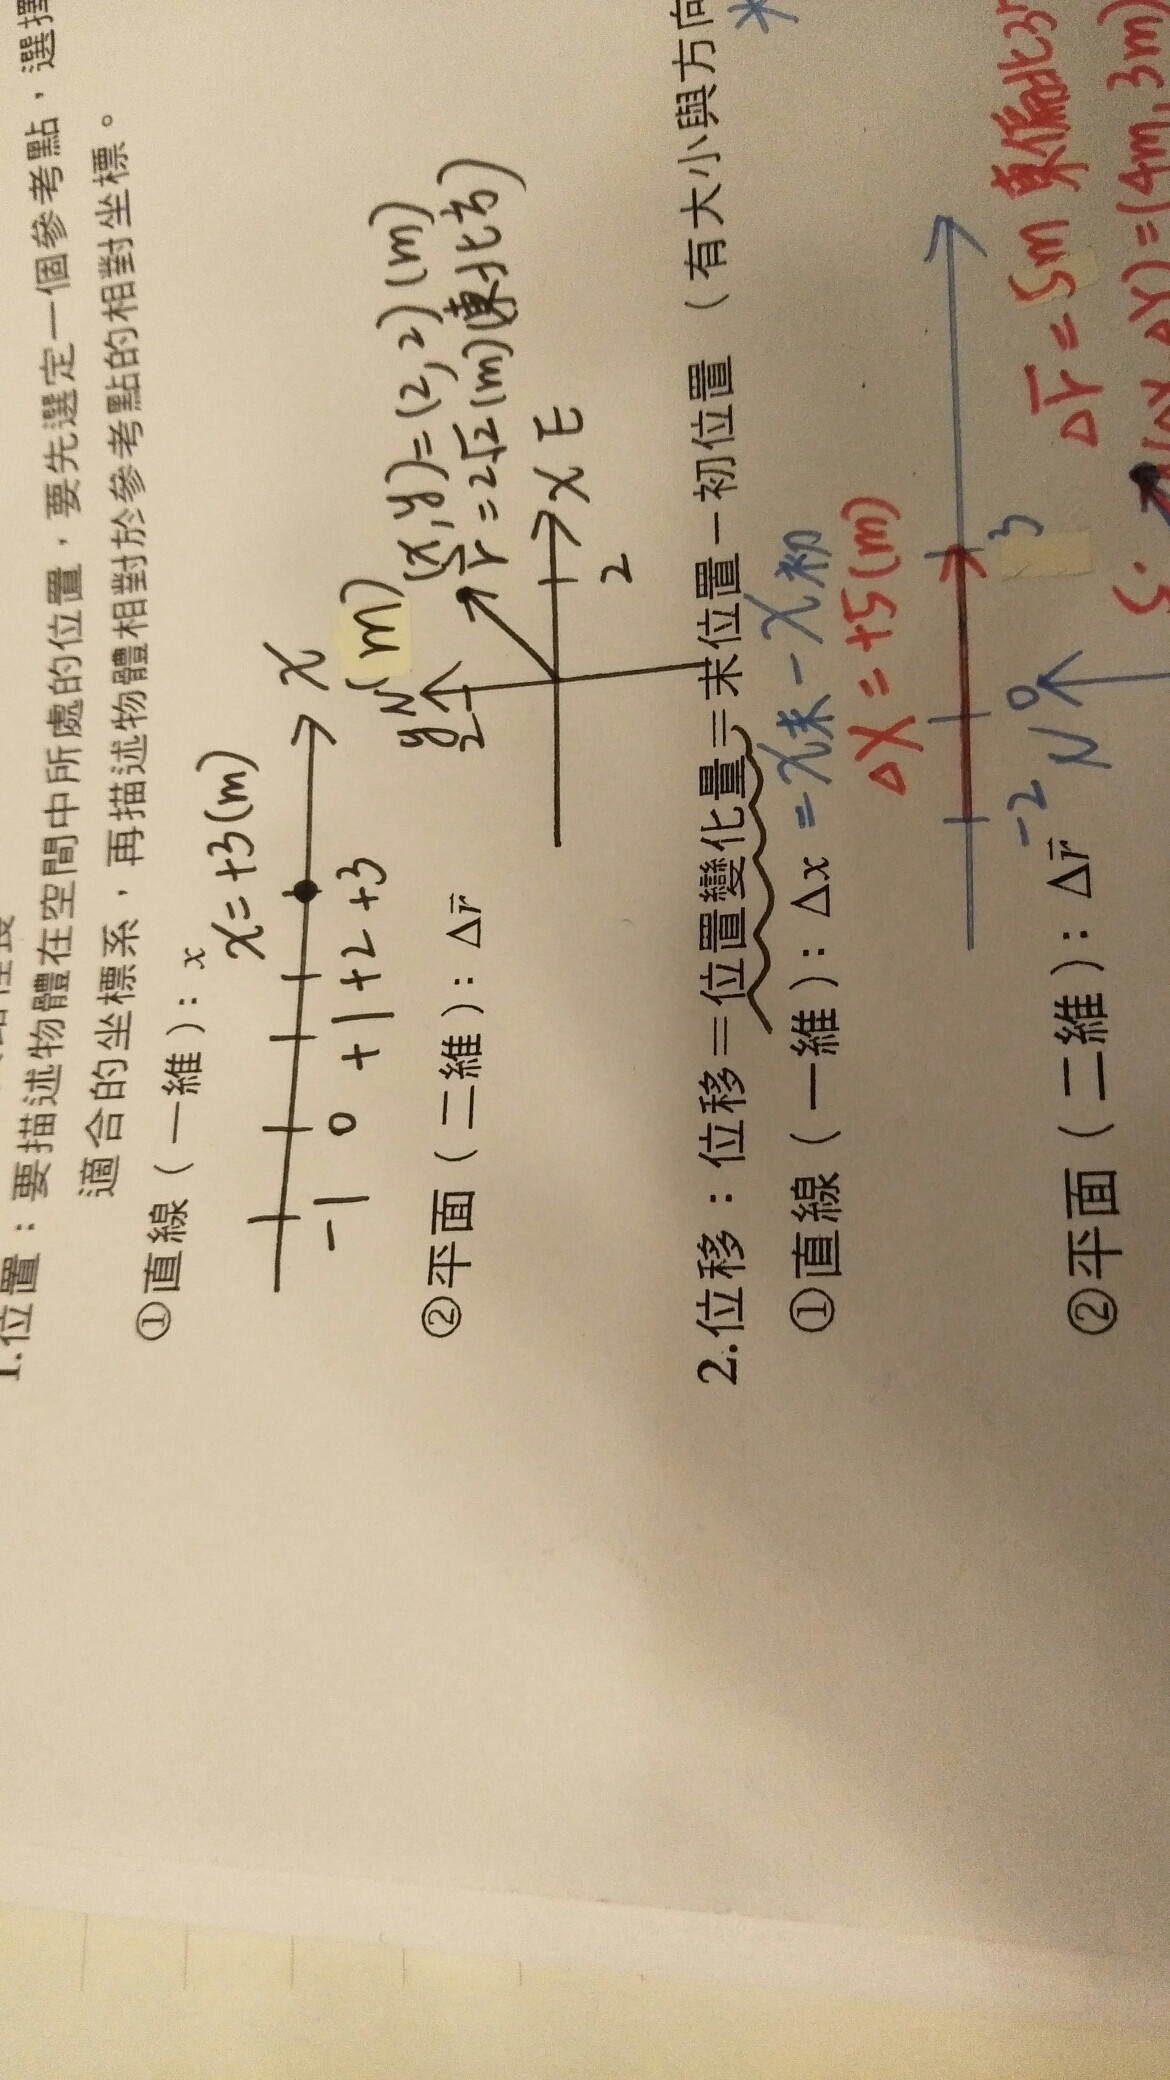 1.位置：要描述物體在空間中所處的位置，要先選定一個參考點，選擇
適合的坐標系，再描述物體相對於參考點的相對坐標。
①直線（一維）：x
x=+3(m)
x
-1 0 +1 +2 +3
(m)
②平面（二維）：Δr̄
y N
2
(x,y)=(2,2)(m)
r̄=2√2(m)(東北方)
x E
2
2.位移：位移＝位置變化量＝末位置－初位置（有大小與方向
*
①直線（一維）：Δx =x末-x初
ΔX=+5(m)
-2 0 3
②平面（二維）：Δr̄
N
Δr̄=5m 東偏北3
ΔY)=(4m,3m)
5